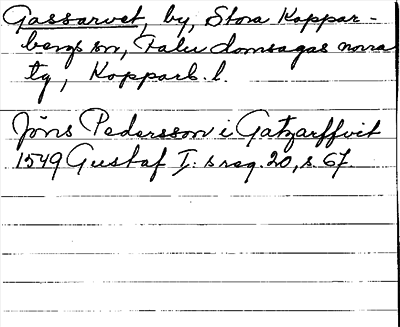 Gassarvet, by, Stora Koppar-
bergs sn, Falu domsagas norra
tg, Kopparb. l.
Jöns Pedersson i Gatzarffvit
1549 Gustaf I:s reg. 20, s. 67.